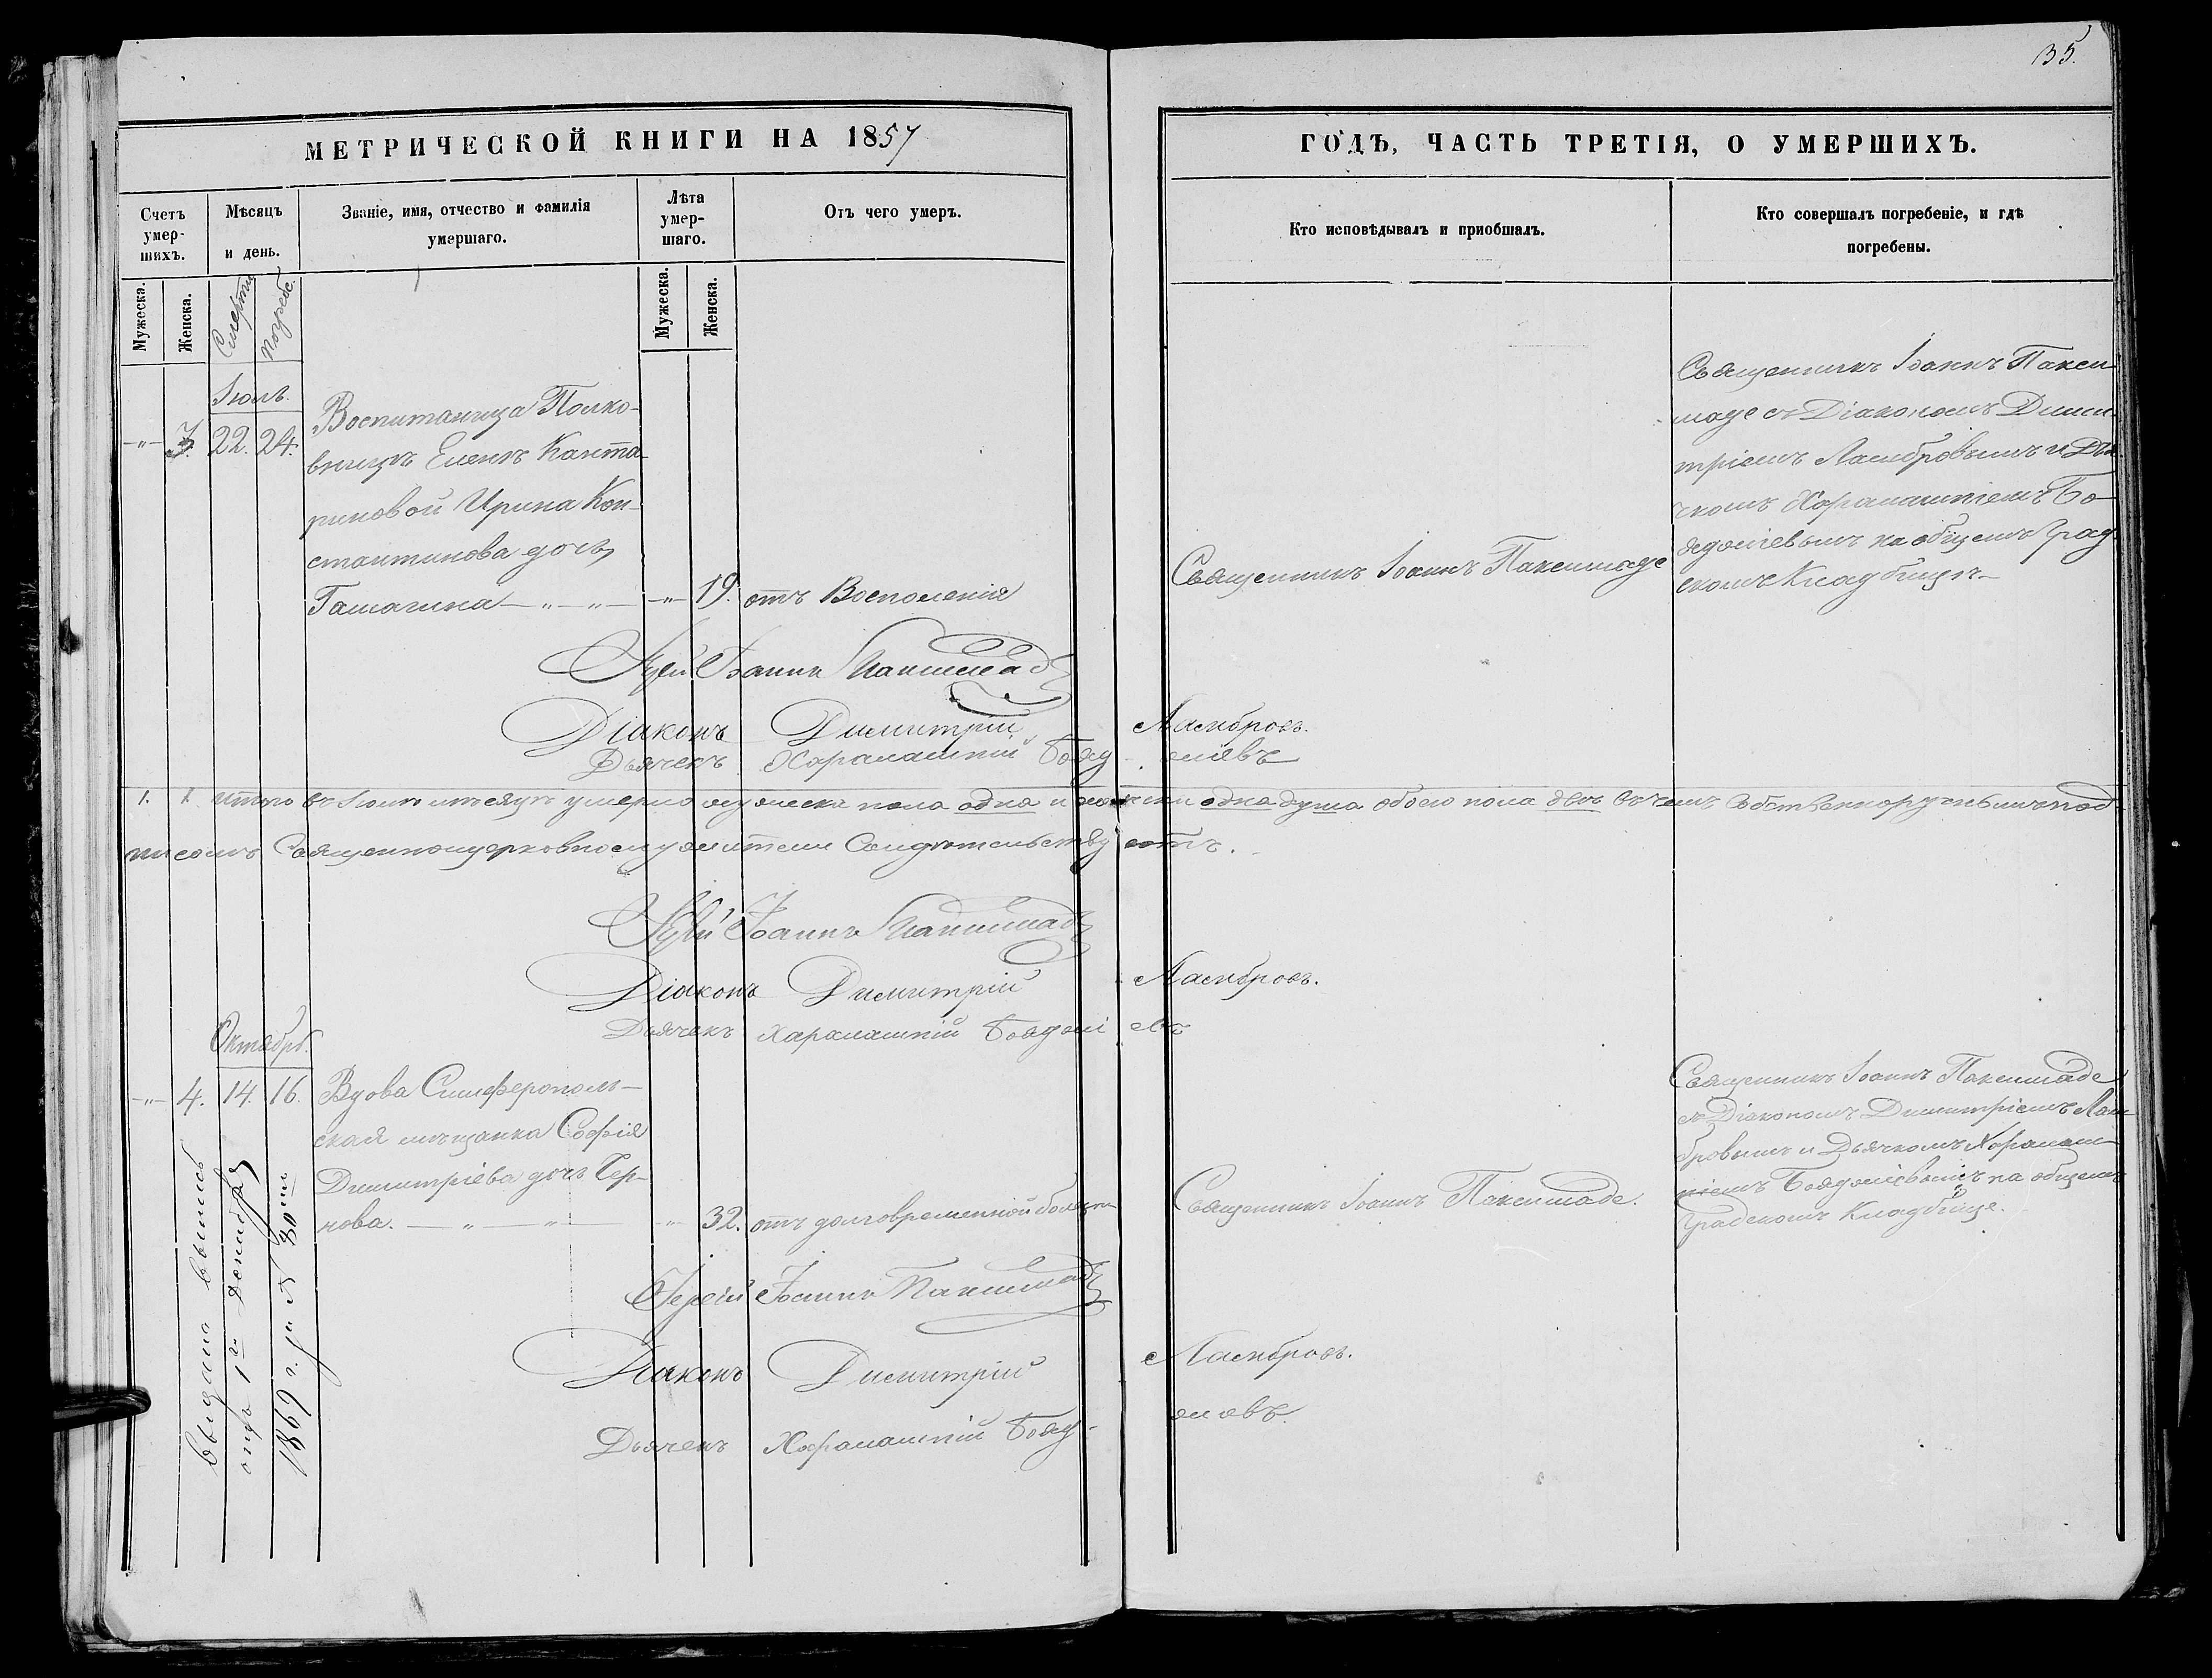 35.
МЕТРИЧЕСКОЙ КНИГИ НА 1857
ГОДЪ, ЧАСТЬ ТРЕТІЯ, О УМЕРШИХЪ.
Счетъ умер-
шихъ.
Мѣсяцъ
и день.
Званіе, имя, отчество и фамилія
умершаго.
Лѣта
умер-
шаго.
Отъ чего умеръ.
Кто исповѣдывалъ и пріобщалъ.
Кто совершалъ погребеніе, и гдѣ
погребены.
Мужеска.
Женска.
Смерти
погребе.
Мужеска.
Женска.
Іюль.
-"- 3. 22. 24.
Воспитанница Полко-
вницѣ Еленѣ Канта-
риновой Ирина Кон-
стантинова дочь
-"- 19. отъ Воспаленія
Священникъ Іоаннъ Паксимаде
Священникъ Іоаннъ Пакси
маде съ Діакономъ Дими
тріемъ Ламбровымъ и Дья
чкомъ Харалампіемъ Бо
яджіевымъ на общемъ Град
скомъ Кладбищѣ
Іерей Іоаннъ Паксимаде
Діаконъ Димитрій Ламбровъ.
Дьячекъ Харалампій Бояджіевъ
1. 1. Итого въ Іюлѣ мѣсяцѣ умерло мужеска пола одна и женска одна душа обоего пола двѣ въ чемъ Собственноручнымъ под-
писомъ Священноцерковнослужители Свидѣтельствуютъ.
Іерей Іоаннъ Паксимаде
Діаконъ Димитрій Ламбровъ.
Дьячекъ Харалампій Бояджіевъ
Октябрь.
-"- 4. 14. 16.
Вдова Симферополь-
ская мѣщанка Софія
Димитріева дочь Чер-
нова. -"- 32. отъ долговременной болезни
Священникъ Іоаннъ Паксимаде.
Священникъ Іоаннъ Паксимаде
съ Діакономъ Димитріемъ Лам-
бровымъ и Дьячкомъ Харалам-
піемъ Бояджіевымъ на общемъ
Градскомъ Кладбище.
Выдана выпись
1го Декабря
1869 г. № 80
Іерей Іоаннъ Паксимаде
Діаконъ Димитрій Ламбровъ.
Дьячекъ Харалампій Бояджіевъ.